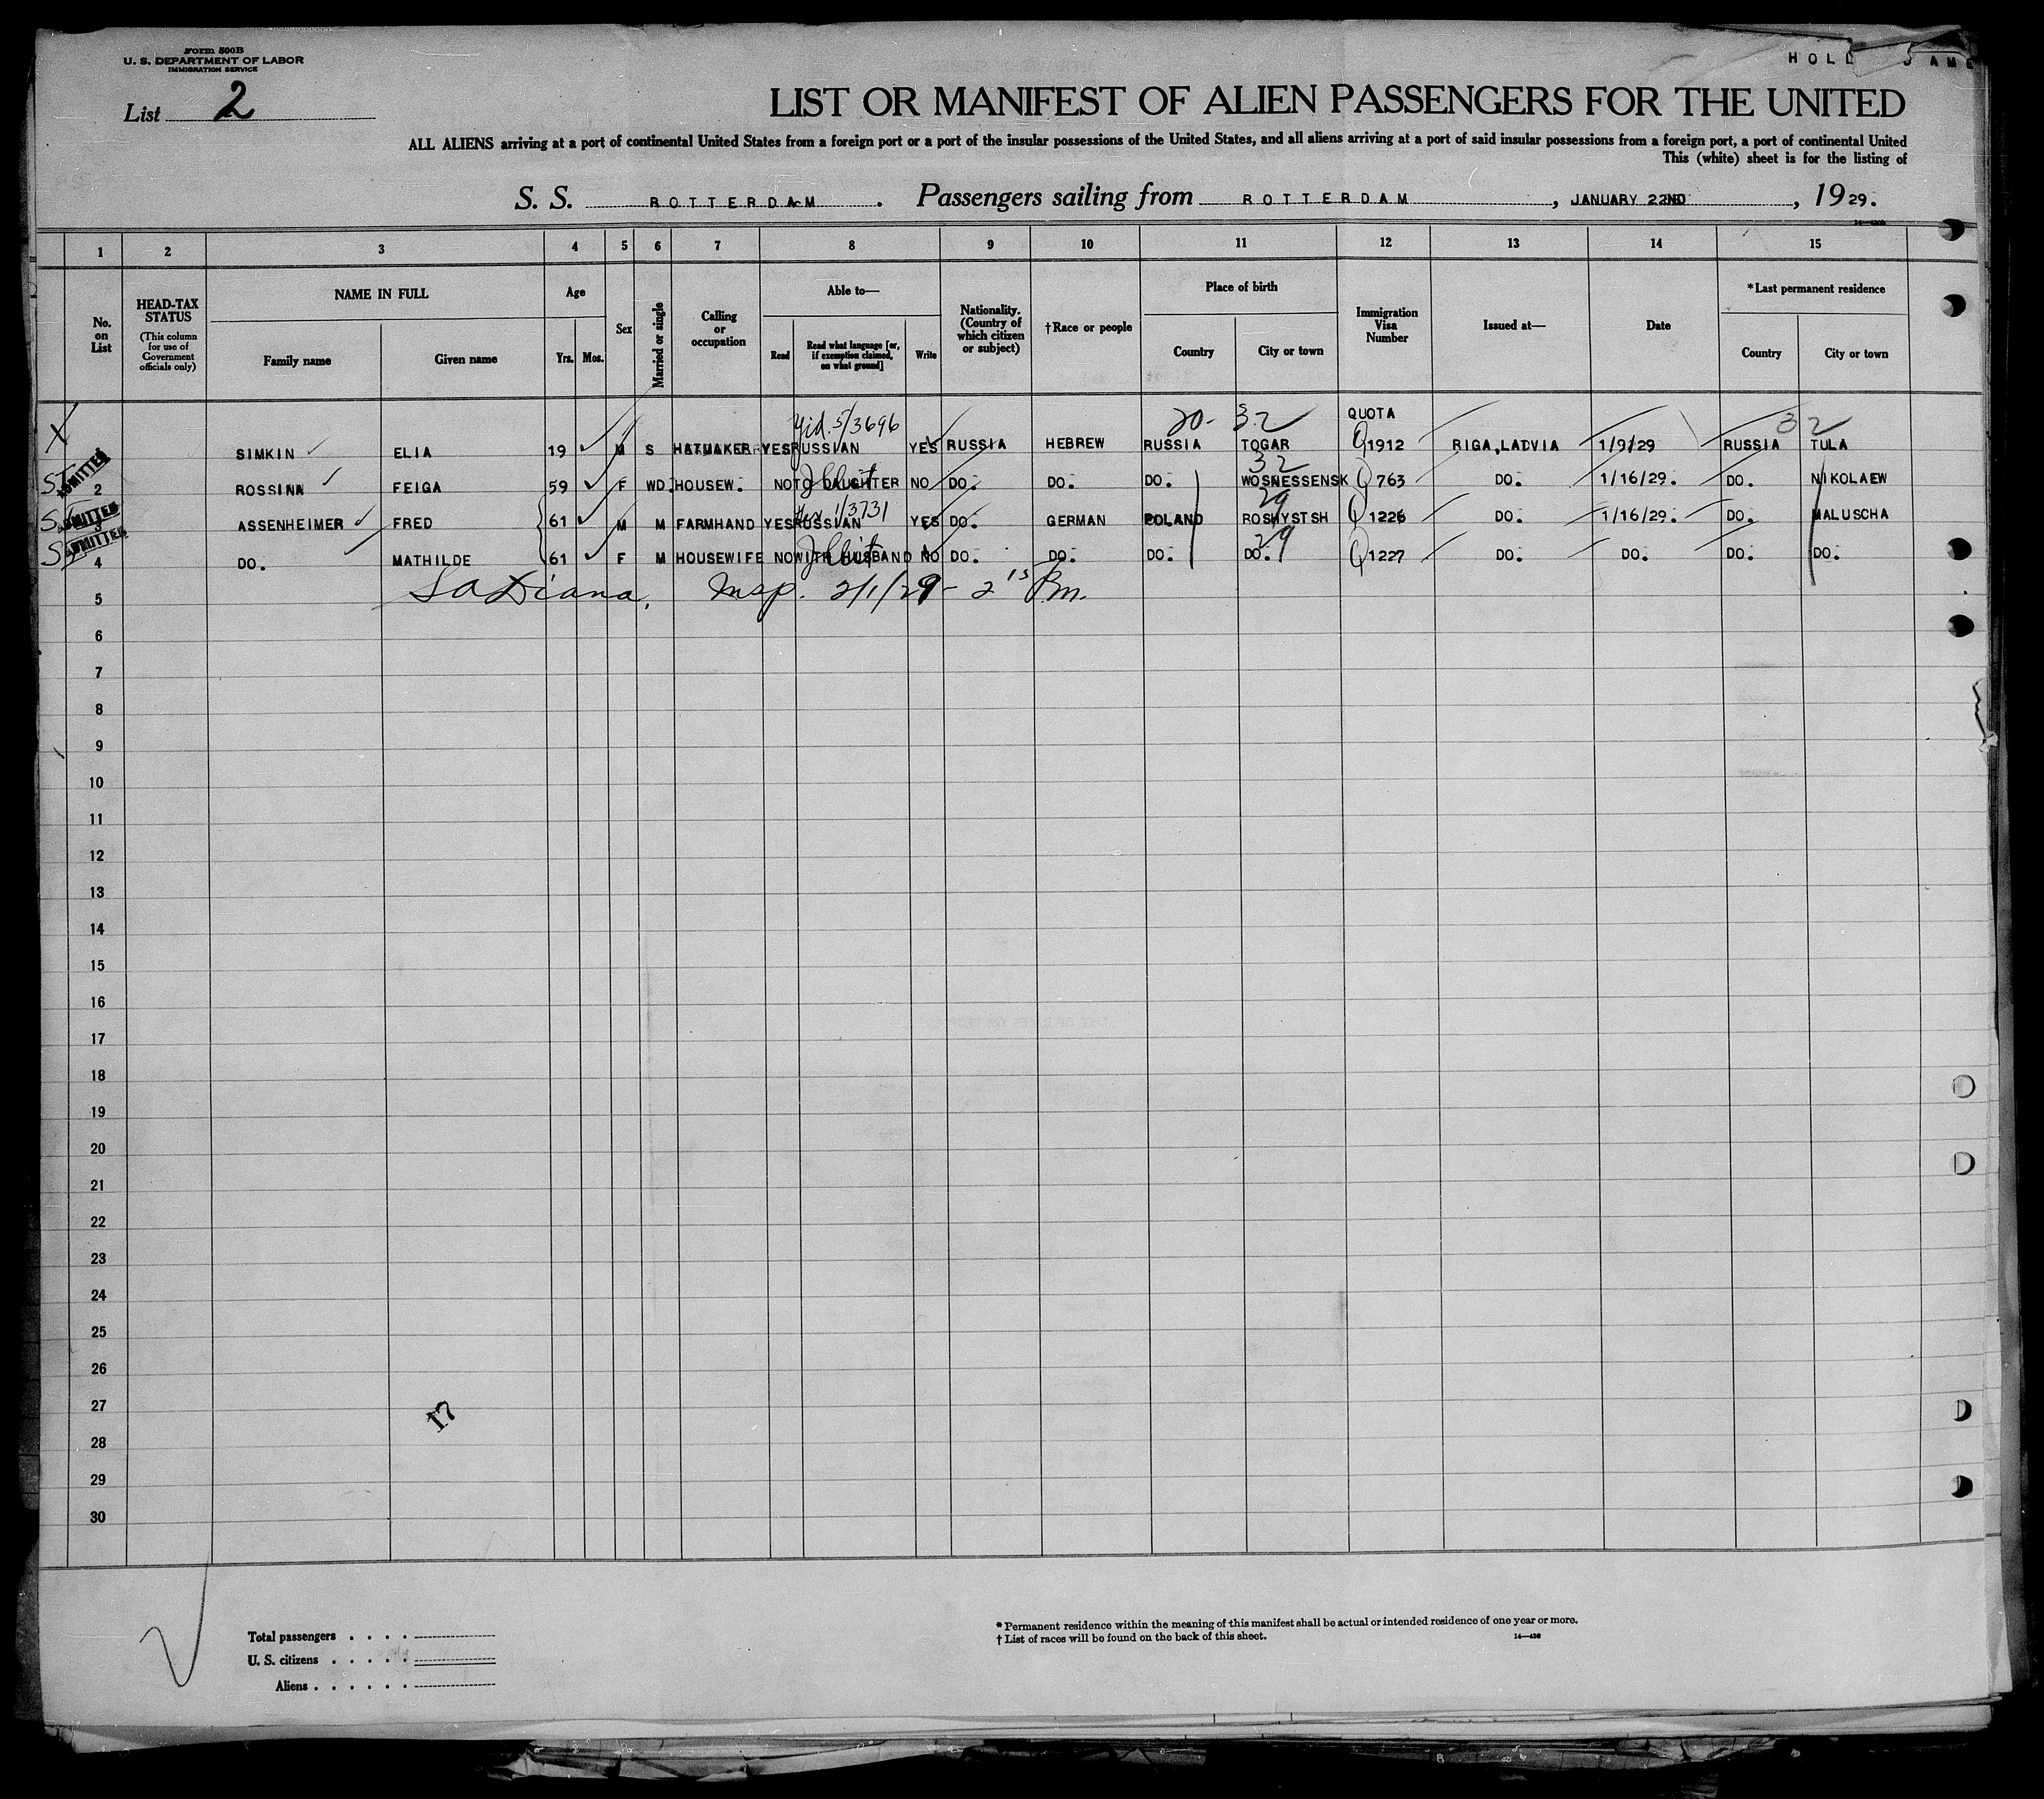 Form 500B
U. S. DEPARTMENT OF LABOR
IMMIGRATION SERVICE
HOLL AME
List 2
LIST OR MANIFEST OF ALIEN PASSENGERS FOR THE UNITED
ALL ALIENS arriving at a port of continental United States from a foreign port or a port of the insular possessions of the United States, and all aliens arriving at a port of said insular possessions from a foreign port, a port of continental United
This (white) sheet is for the listing of
S. S. ROTTERDAM . Passengers sailing from ROTTERDAM , JANUARY 22ND , 1929.
1 2 3 4 5 6 7 8 9 10 11 12 13 14 15
No. on List HEAD-TAX STATUS (This column for use of Government officials only) NAME IN FULL Family name Given name Age Yrs. Mos. Sex Married or single Calling or occupation Able to— Read Read what language [or, if exemption claimed, on what ground] Write Nationality. (Country of which citizen or subject) †Race or people Place of birth Country City or town Immigration Visa Number Issued at— Date *Last permanent residence Country City or town
Yid. 5/3696 20- 32 QUOTA 32
X 1 SIMKIN ELIA 19 M S HATMAKER YES RUSSIAN YES RUSSIA HEBREW RUSSIA TOGAR Q1912 RIGA,LADVIA 1/9/29 RUSSIA TULA
32
ADMITTED 2 ROSSINA FEIGA 59 F WD. HOUSEW. NO TO DAUGHTER NO DO. DO. DO. WOSNESSENSK Q 763 DO. 1/16/29. DO. NIKOLAEW
1/3731 29
ADMITTED 3 ASSENHEIMER FRED 61 M M FARMHAND YES RUSSIAN YES DO. GERMAN POLAND ROSHYSTSH Q 1226 DO. 1/16/29. DO. MALUSCHA
29
ADMITTED 4 DO. MATHILDE 61 F M HOUSEWIFE NO WITH HUSBAND NO DO. DO. DO. DO. Q1227 DO. DO. DO. DO.
5 LaDiana, Insp. 2/1/29 - 2 15 Pm.
6
7
8
9
10
11
12
13
14
15
16
17
18
19
20
21
22
23
24
25
26
27
17
28
29
30
* Permanent residence within the meaning of this manifest shall be actual or intended residence of one year or more.
† List of races will be found on the back of this sheet.
Total passengers . . . .
U. S. citizens . . . . .
Aliens . . . . . .